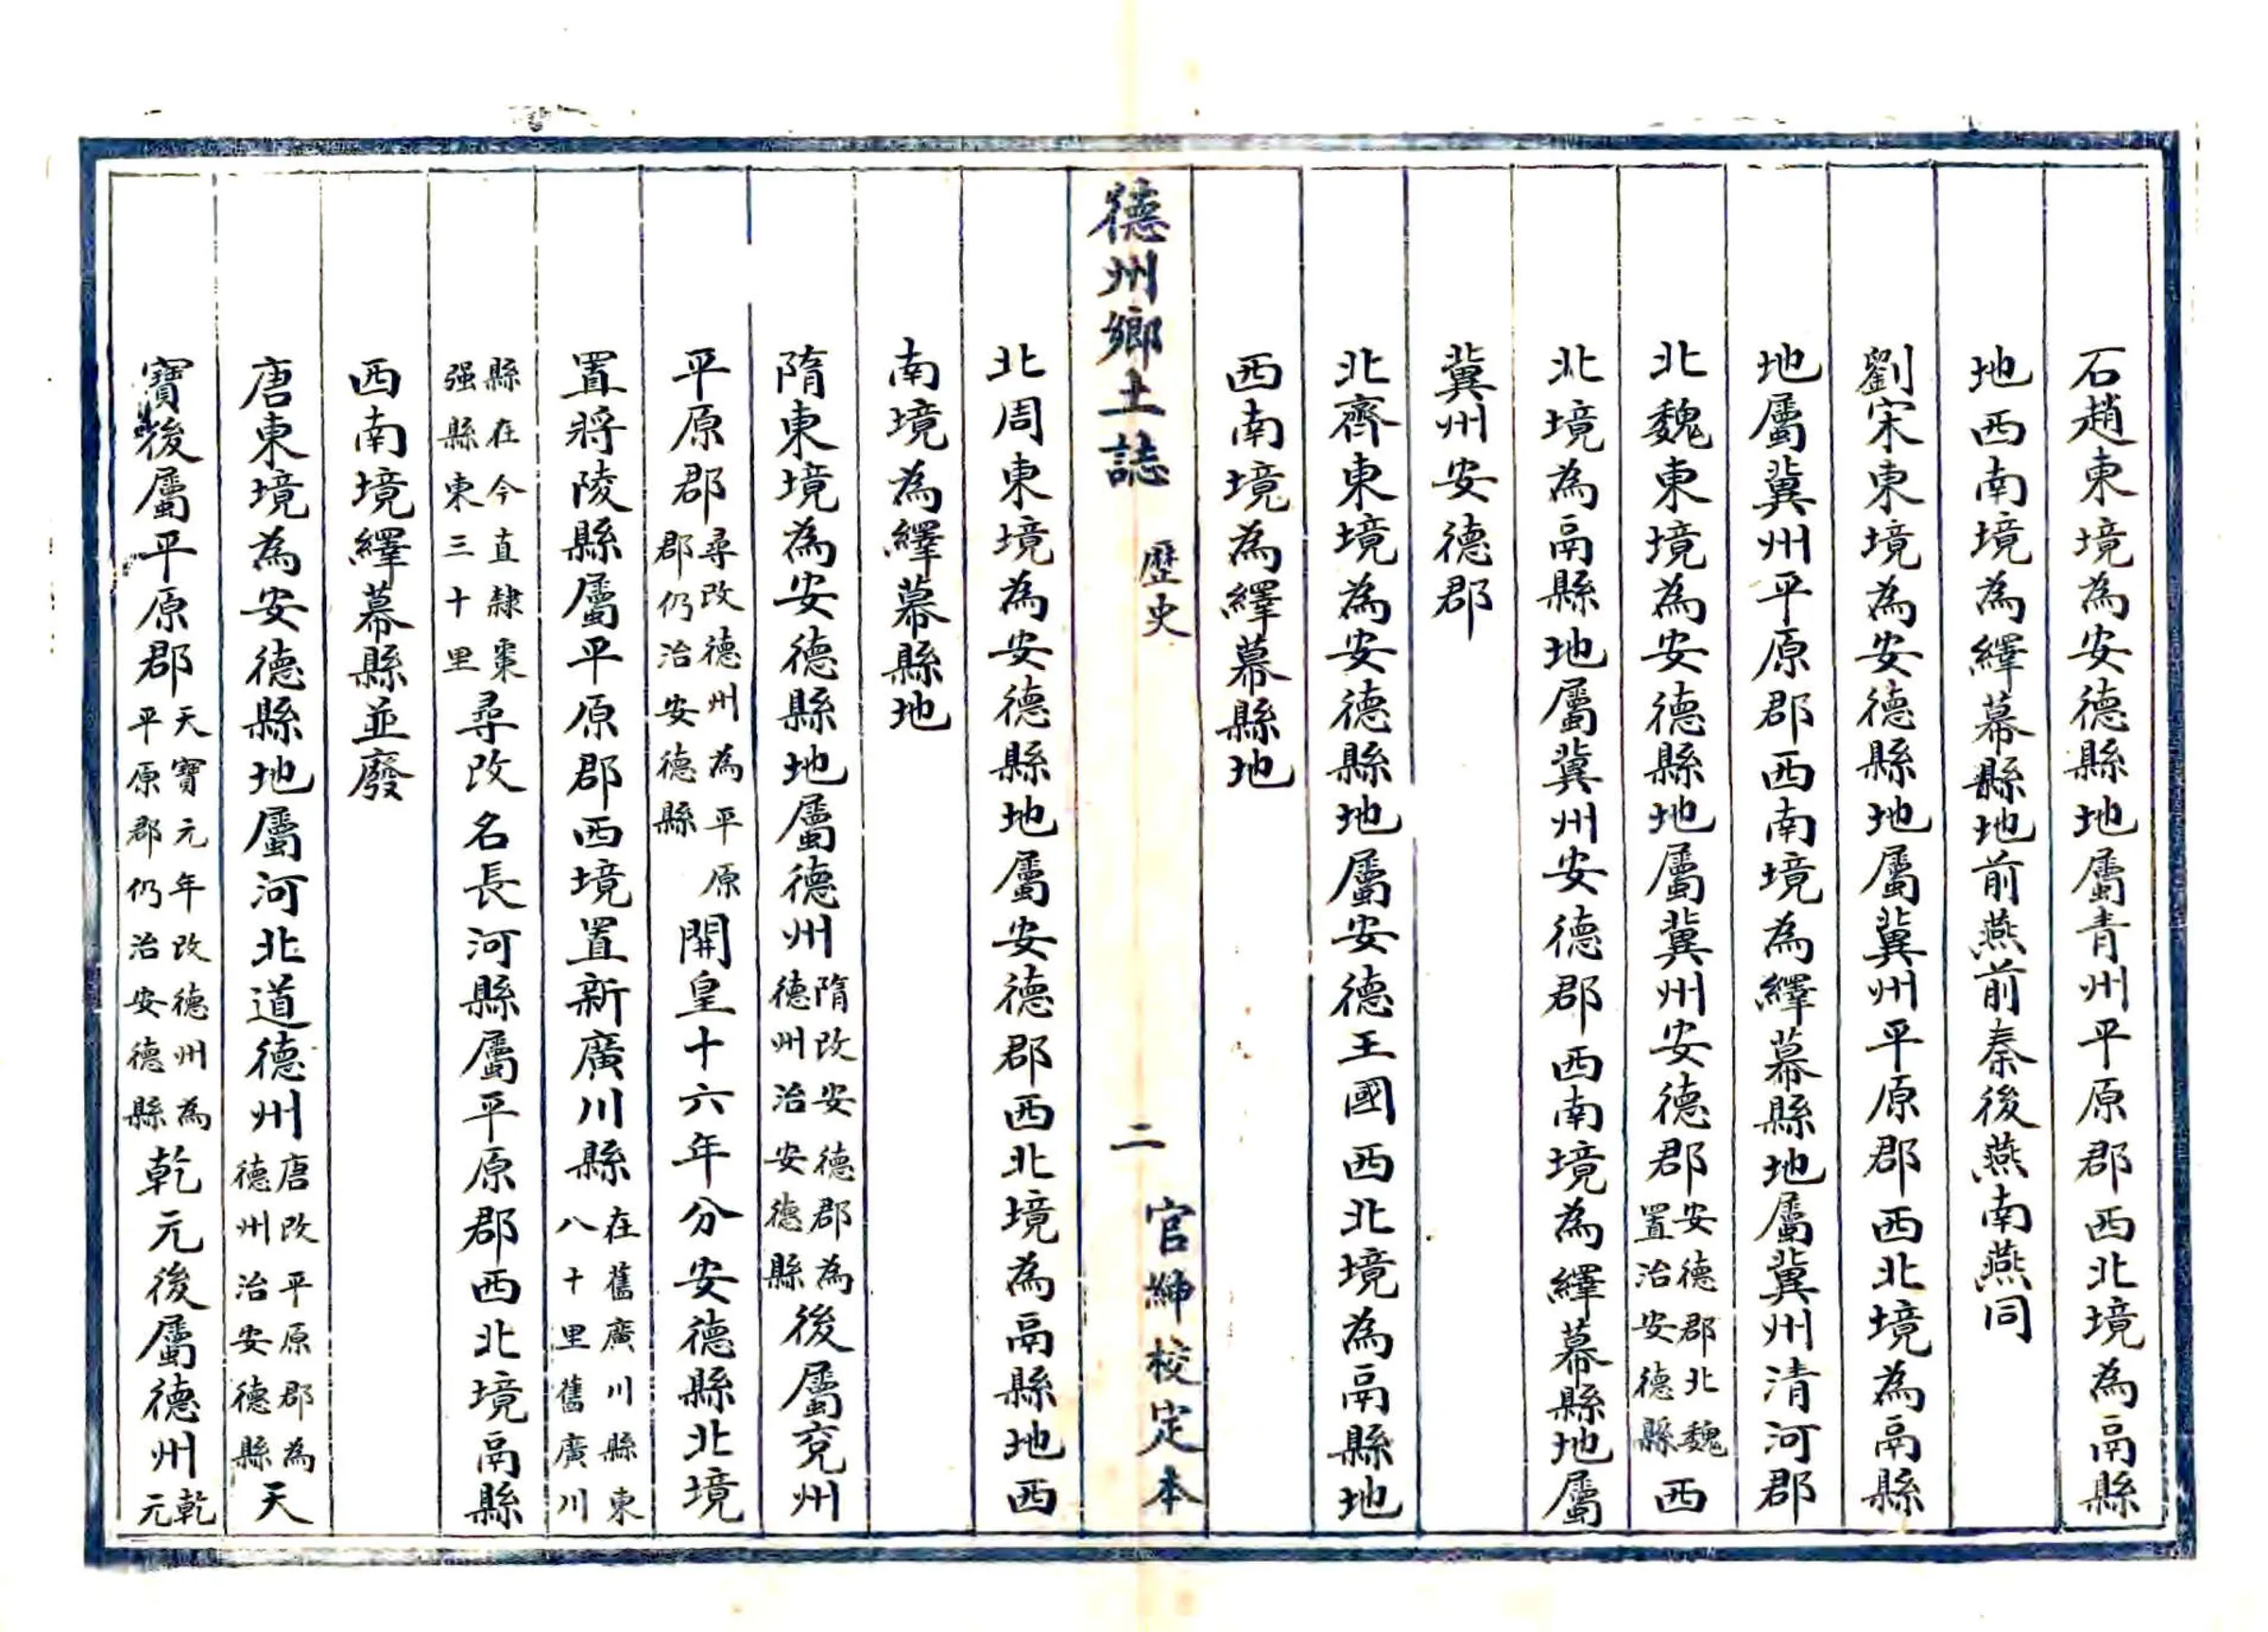 石趙東境為安德縣地屬青州平原郡西北境為鬲縣
地西南境為繹幕縣地前燕前秦後燕南燕同
劉宋東境為安德縣地屬冀州平原郡西北境為鬲縣
地屬冀州平原郡西南境為繹幕縣地屬冀州清河郡
北魏東境為安德縣地屬冀州安德郡安德郡北魏置治安德縣西
北境為鬲縣地屬冀州安德郡西南境為繹幕縣地屬
冀州安德郡
北齊東境為安德縣地屬安德王國西北境為鬲縣地
西南境為繹幕縣地
德州鄉土誌 歷史 二 官紳校定本
北周東境為安德縣地屬安德郡西北境為鬲縣地西
南境為繹幕縣地
隋東境為安德縣地屬德州隋改安德郡為德州治安德縣後屬兗州
平原郡尋改德州為平原郡仍治安德縣開皇十六年分安德縣北境
置將陵縣屬平原郡西境置新廣川縣在舊廣川縣東八十里舊廣川
縣在今直隸棗强縣東三十里尋改名長河縣屬平原郡西北境鬲縣
西南境繹幕縣並廢
唐東境為安德縣地屬河北道德州唐改平原郡為德州治安德縣天
寶後屬平原郡天寶元年改德州為平原郡仍治安德縣乾元後屬德州乾元